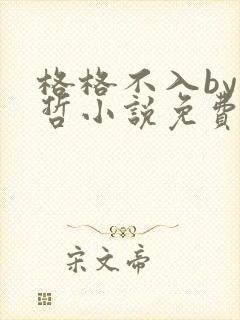 格格不入by
哲小說免費
宋文帝